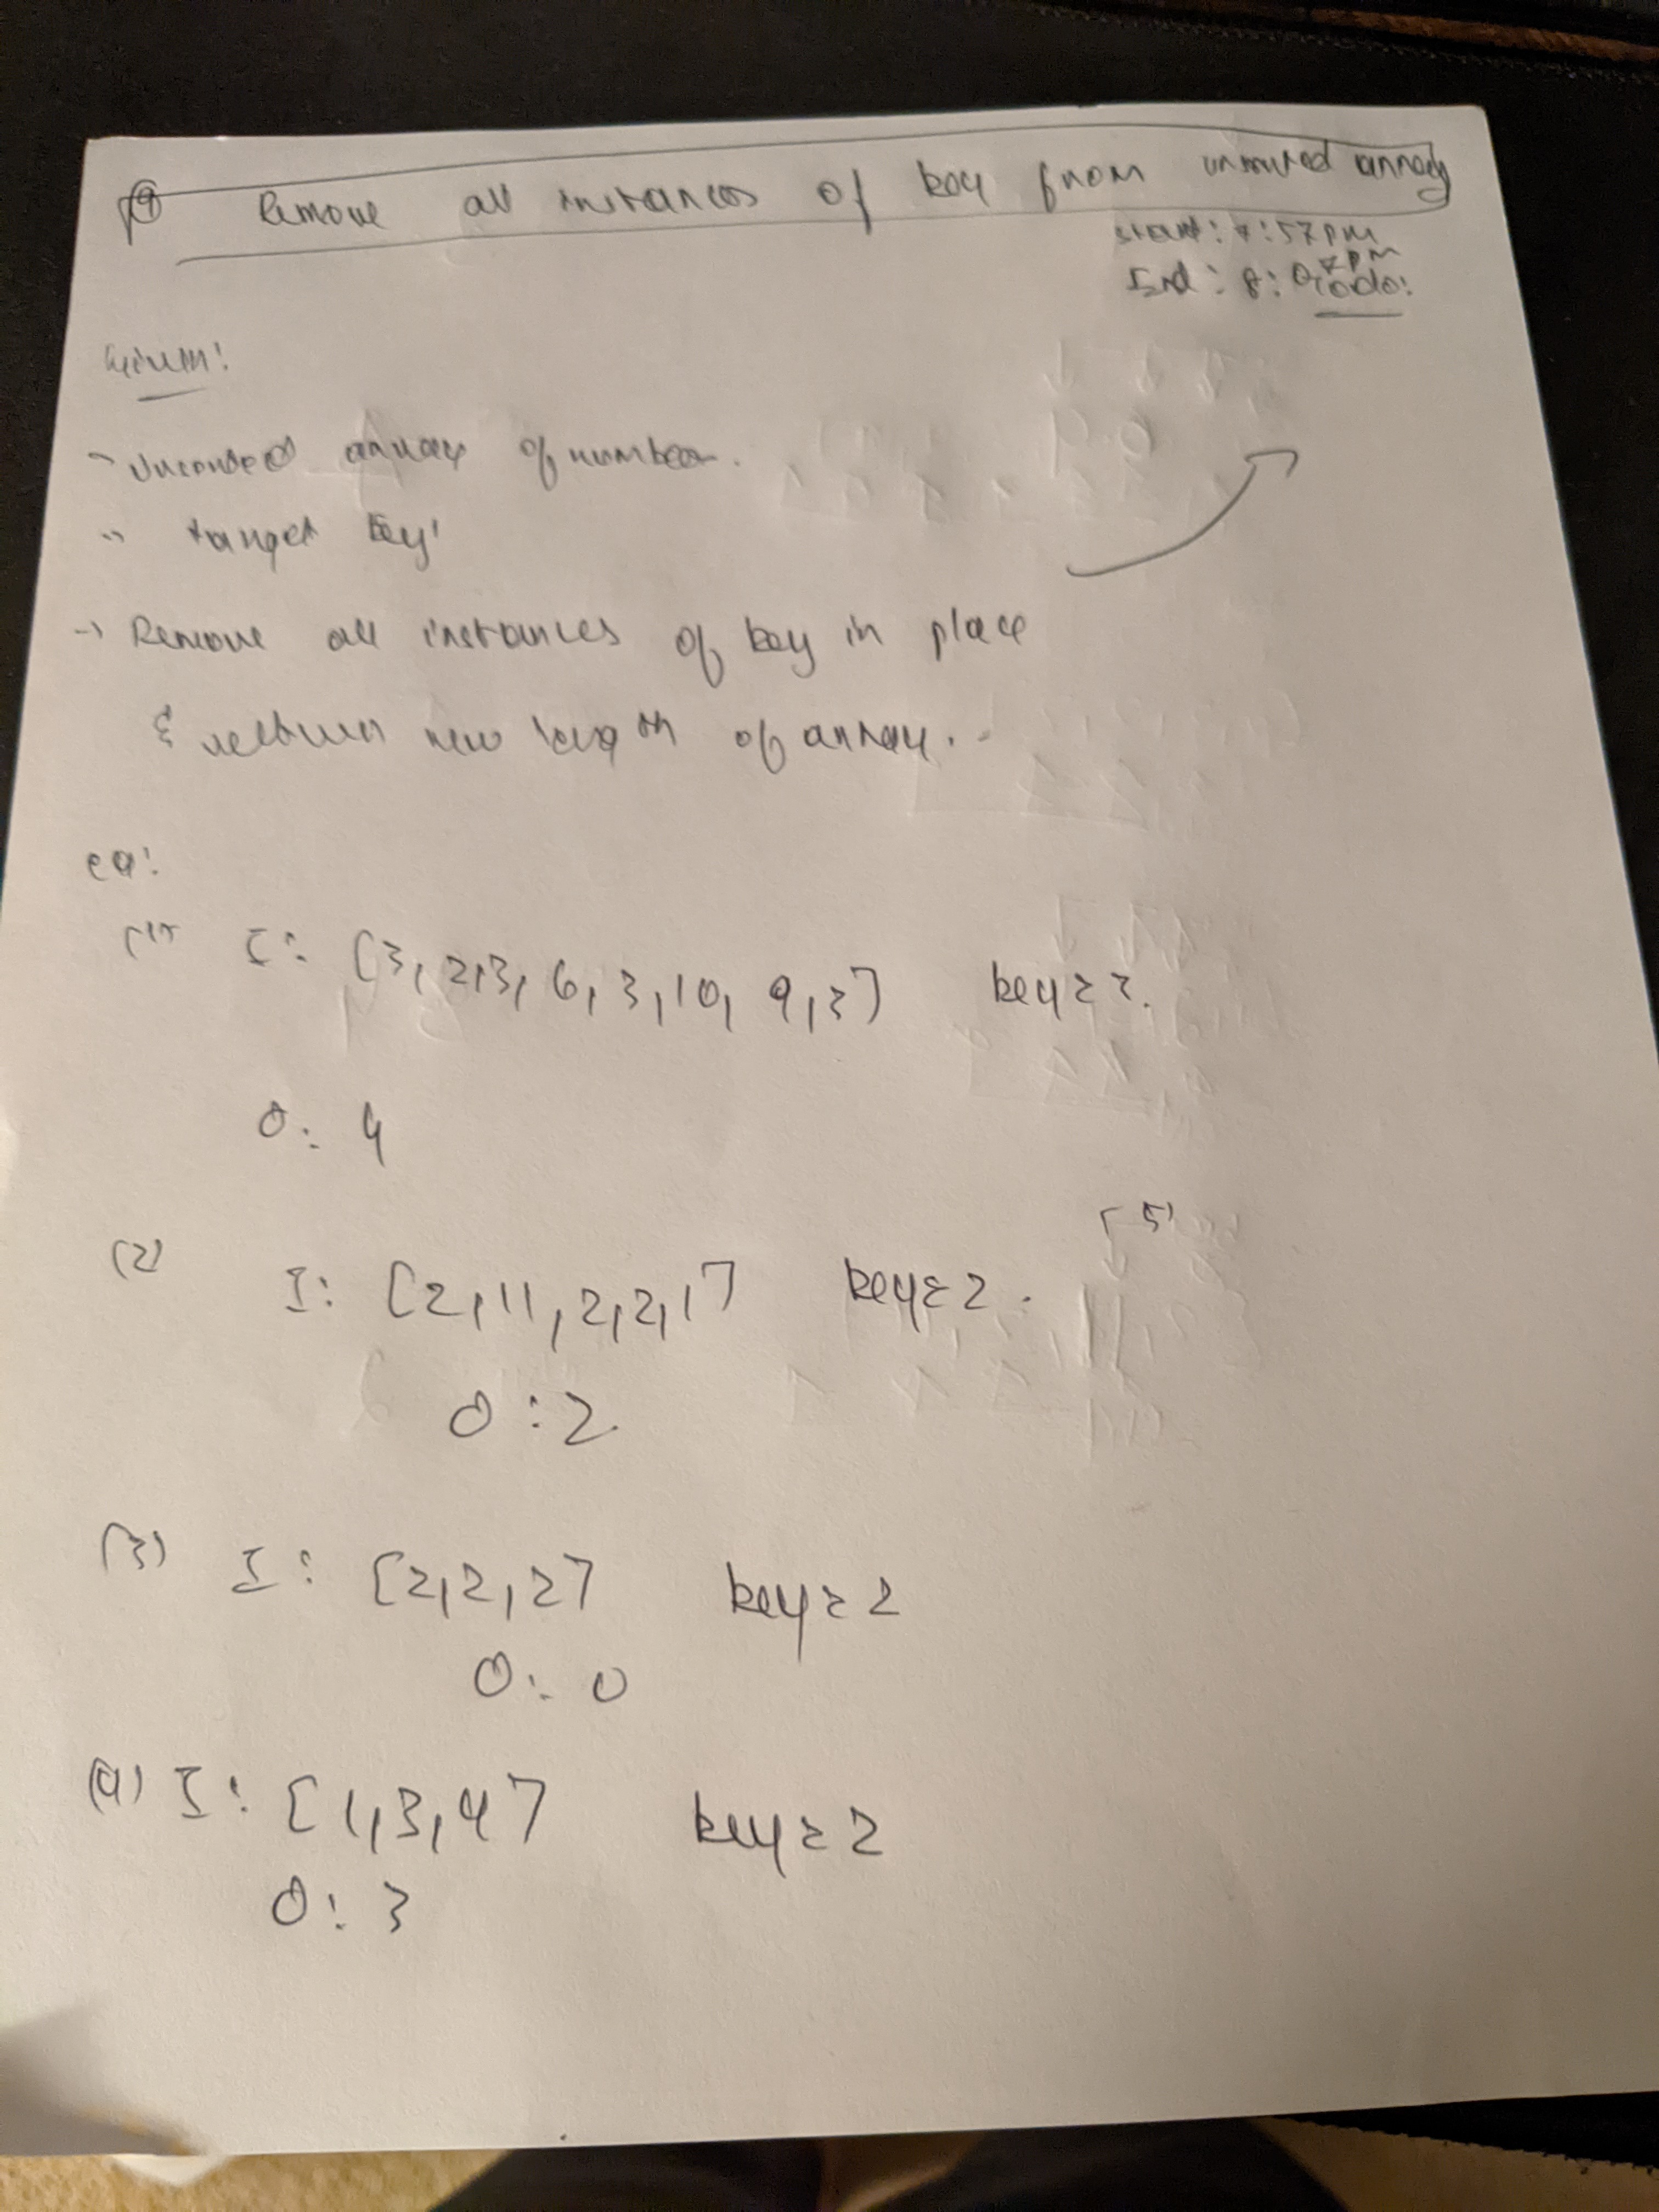 Remove all instances of key from unsorted array
Start: 7:57 PM
End: 8:07PM
Todo:
Given:
→ Unsorted array of number.
→ target 'key'
→ Remove all instances of key in place
& return new length of array.
eg:
(1) I: [3, 2, 3, 6, 3, 10, 9, 3] key = 3.
O: 4
(2) I: [2, 11, 2, 2, 1] key = 2.
O: 2.
(3) I: [2, 2, 2] key = 2
O: 0
(4) I: [1, 3, 4] key = 2
O: 3